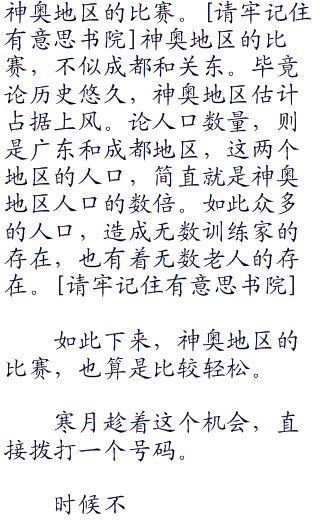 神奥地区的比赛。[请牢记住
有意思书院]神奥地区的比
赛，不似成都和关东。毕竟
论历史悠久，神奥地区估计
占据上风。论人口数量，则
是广东和成都地区，这两个
地区的人口，简直就是神奥
地区人口的数倍。如此众多
的人口，造成无数训练家的
存在，也有着无数老人的存
在。[请牢记住有意思书院]
如此下来，神奥地区的
比赛，也算是比较轻松。
寒月趁着这个机会，直
接拨打一个号码。
时候不